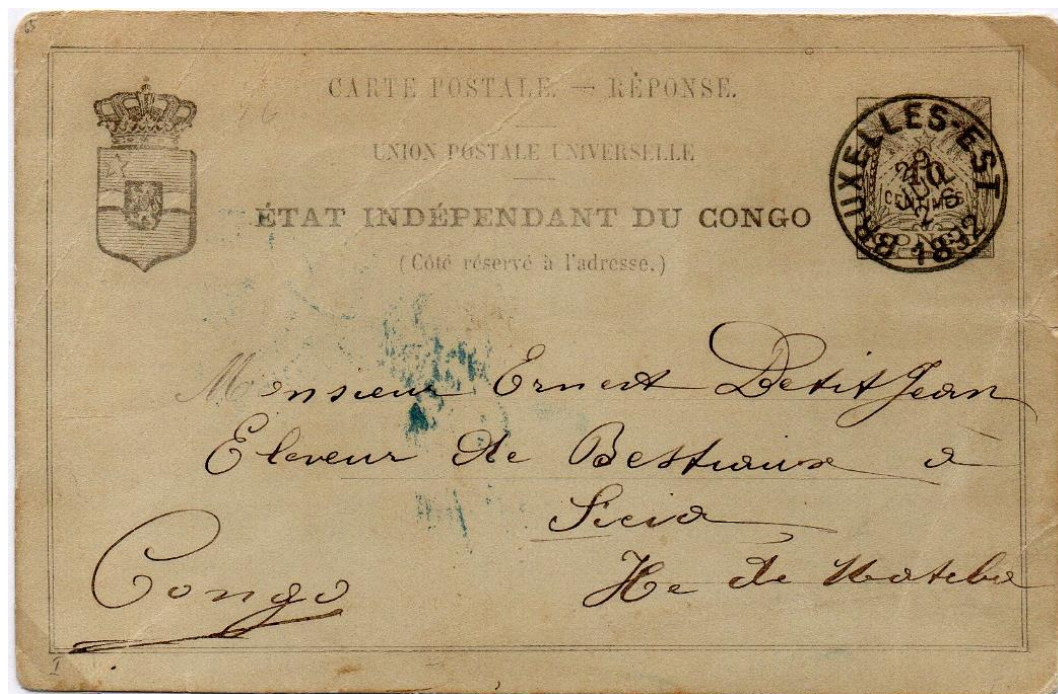 CARTE POSTALE. — RÉPONSE.
UNION POSTALE UNIVERSELLE
ÉTAT INDÉPENDANT DU CONGO
(Côté réservé à l'adresse.)
BRUXELLES-EST
1892
Monsieur Ernest Petit Jean
Eleveur de Bestiaux à
Congo
Ile de Mateba